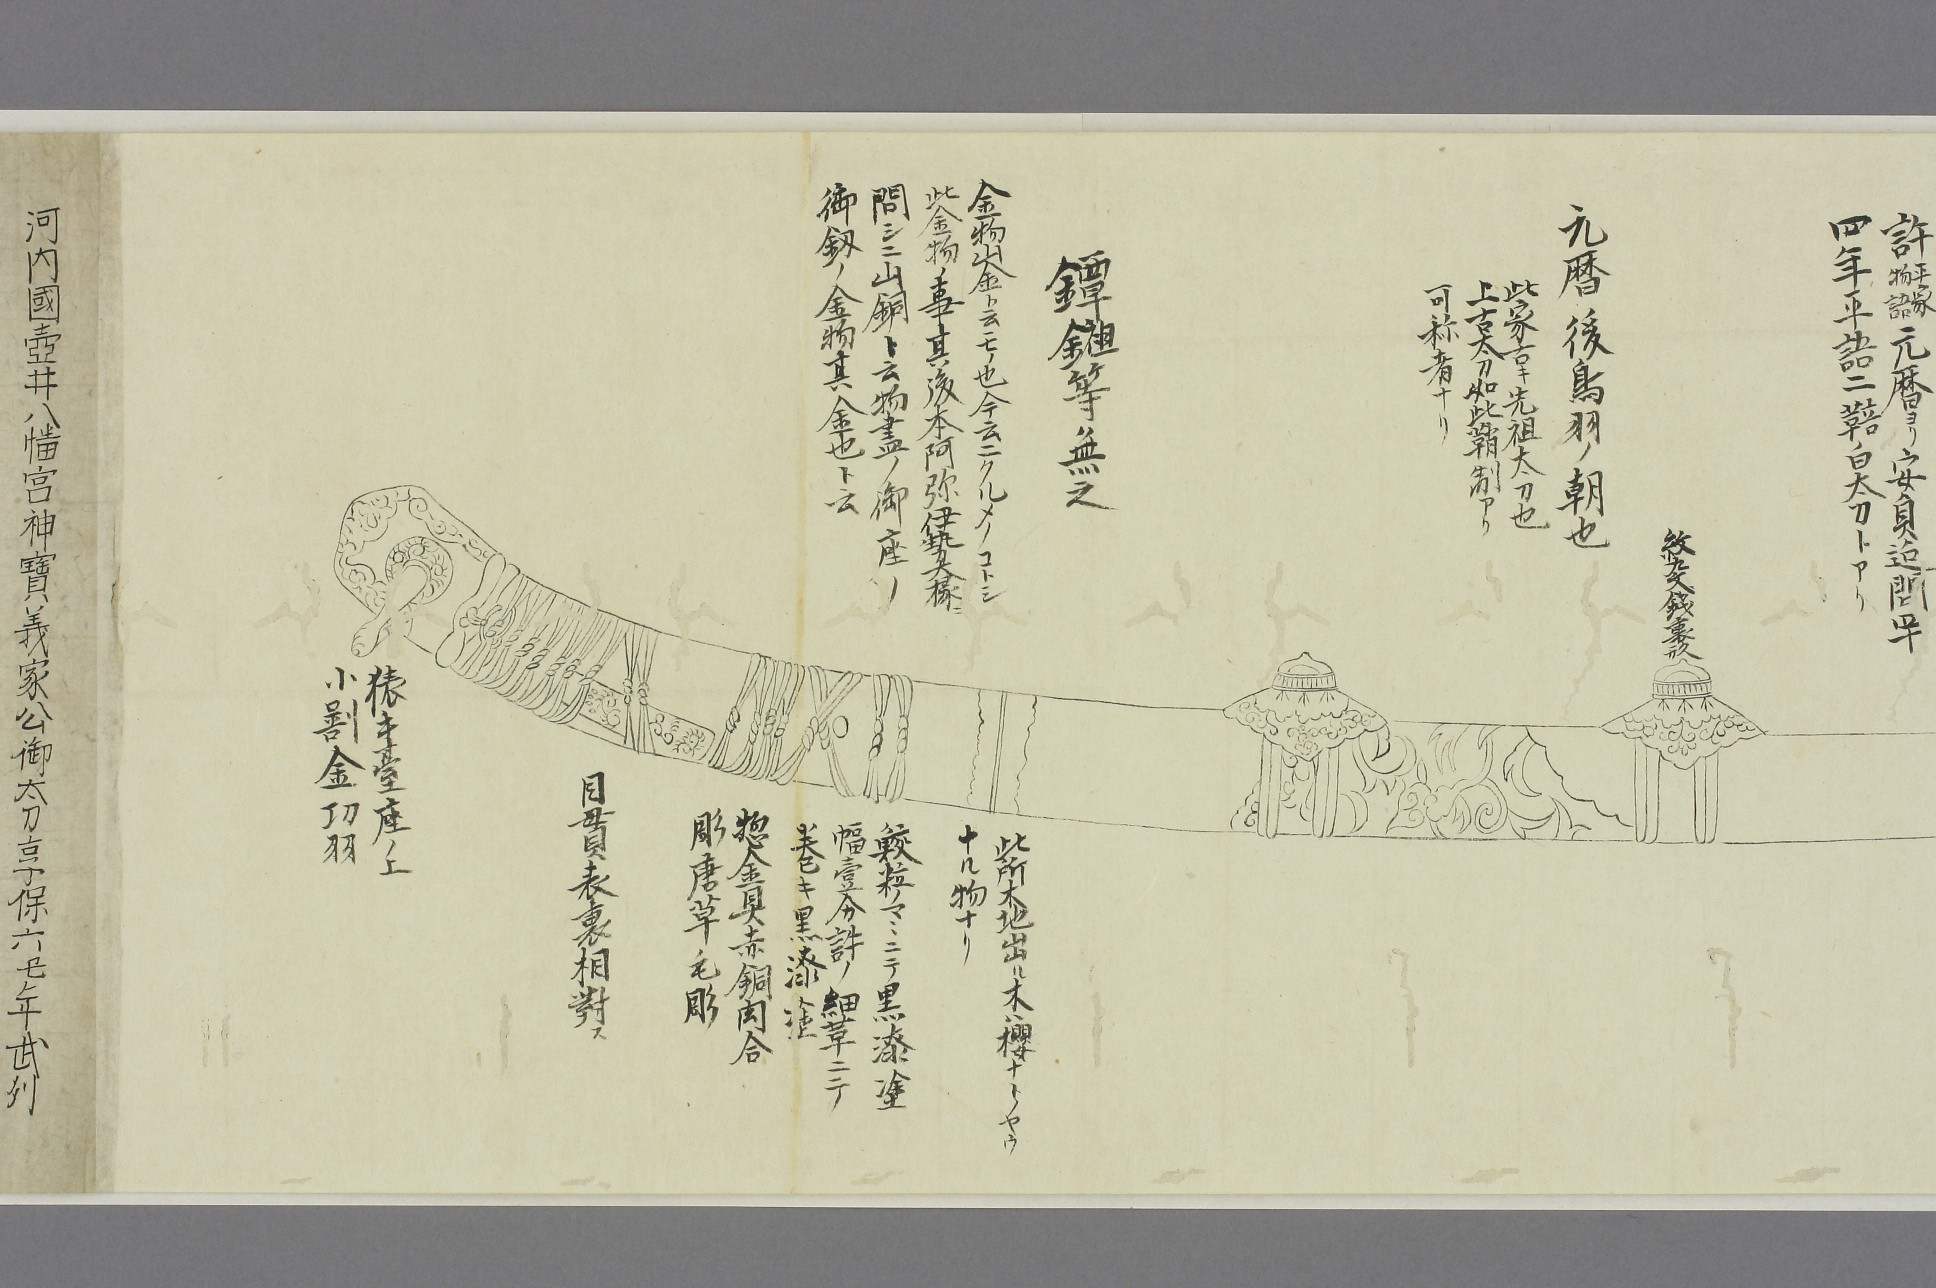 許平家物語元暦ヨリ安貞迄間四十
四年平語ニ鞛ノ白太刀トアリ
紋文銭裏形
元暦後鳥羽ノ朝也
此家古キ先祖太刀也
上古太刀如此鞘制アリ
可称者ナリ
鐔鉏等無之
金物山金ト云モノ也今云ニクルメノコトシ
此金物ノ事其後本阿弥伊勢大掾ニ
問シニ山銅ト云物盡ノ御座ノ
御釼ノ金物其金也ト云
此所木地出ル木ハ櫻ナトノヤウ
ナル物ナリ
鮫粒ノマヽニテ黒漆塗
幅壹分許ノ細革ニテ
巻キ黒漆塗
惣金具赤銅肉合
彫唐草毛彫
目貫表裏相對ス
猿手臺座ノ上
小刻金切羽
河内國壺井八幡宮神寳義家公御太刀享保六 年武列